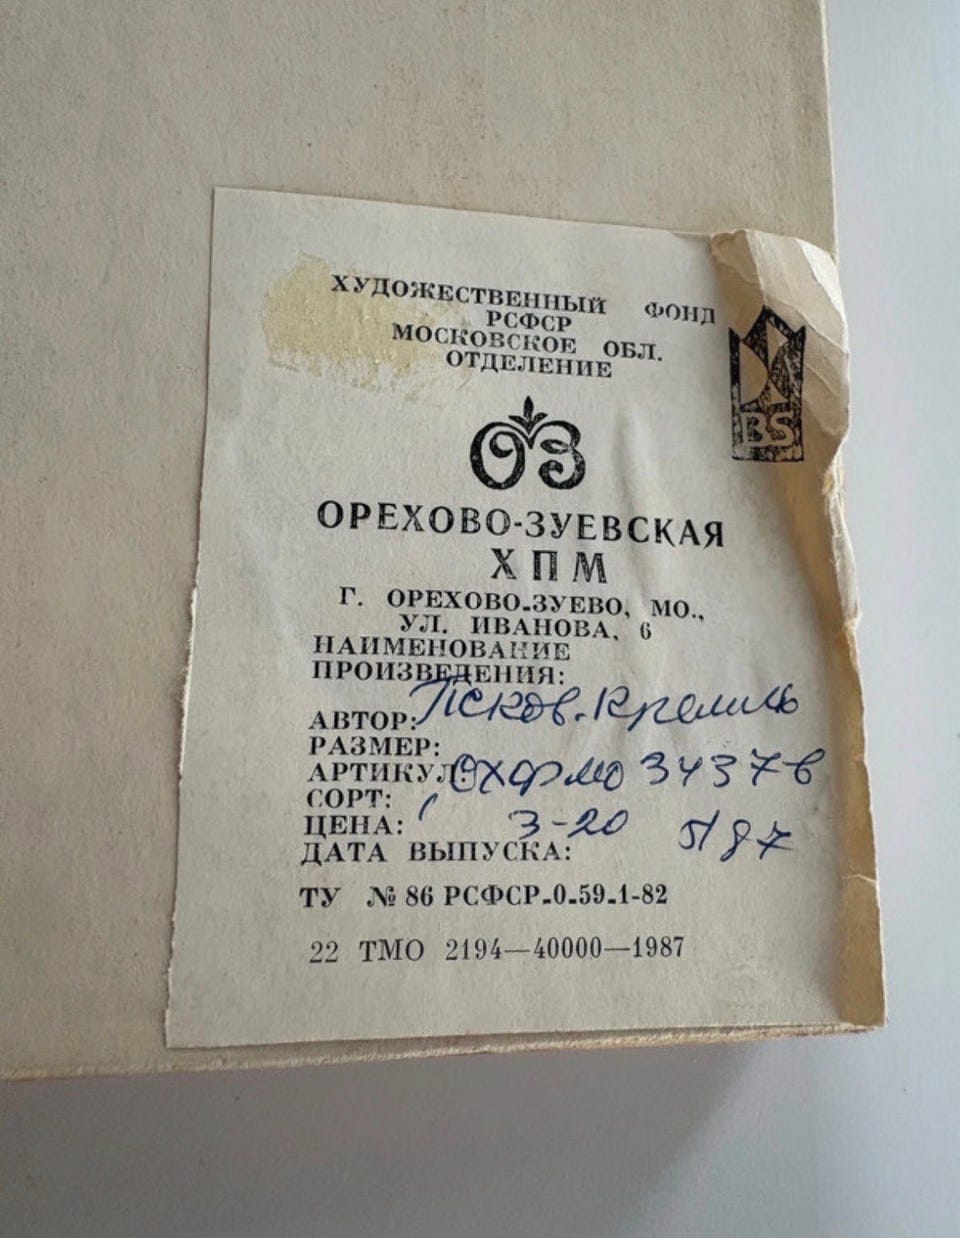 ХУДОЖЕСТВЕННЫЙ ФОНД
РСФСР
МОСКОВСКОЕ ОБЛ.
ОТДЕЛЕНИЕ
ОЗ
BS
ОРЕХОВО-ЗУЕВСКАЯ
ХПМ
Г. ОРЕХОВО-ЗУЕВО, МО.,
УЛ. ИВАНОВА, 6
НАИМЕНОВАНИЕ
ПРОИЗВЕДЕНИЯ:
Псков. Кремль
АВТОР:
РАЗМЕР:
АРТИКУЛ: ОХФМО 3437в
СОРТ: 1
ЦЕНА: 3-20 5/87
ДАТА ВЫПУСКА:
ТУ № 86 РСФСР-0.59.1-82
22 ТМО 2194—40000—1987